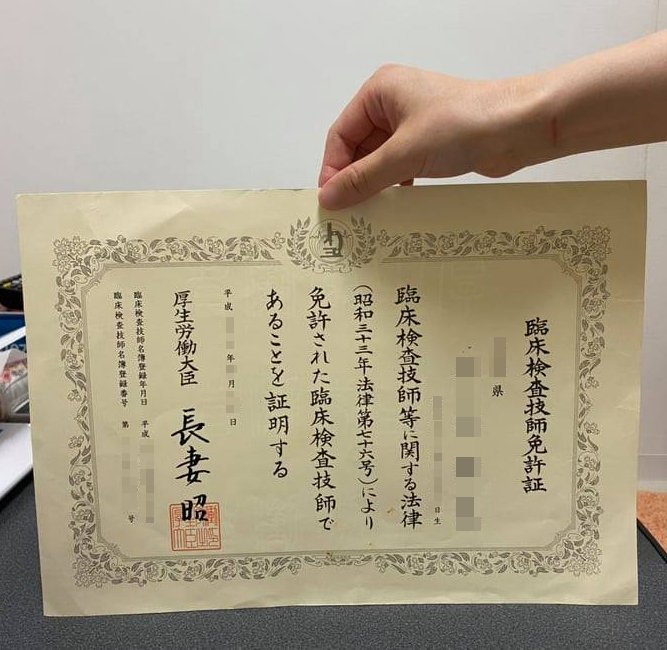 臨床検査技師免許証
県
日生
臨床検査技師等に関する法律
(昭和三十三年法律第七十六号)により
免許された臨床検査技師で
あることを証明する
平成 年 月 日
厚生労働大臣 長妻昭
臨床検査技師名簿登録年月日 平成
臨床検査技師名簿登録番号 第 号